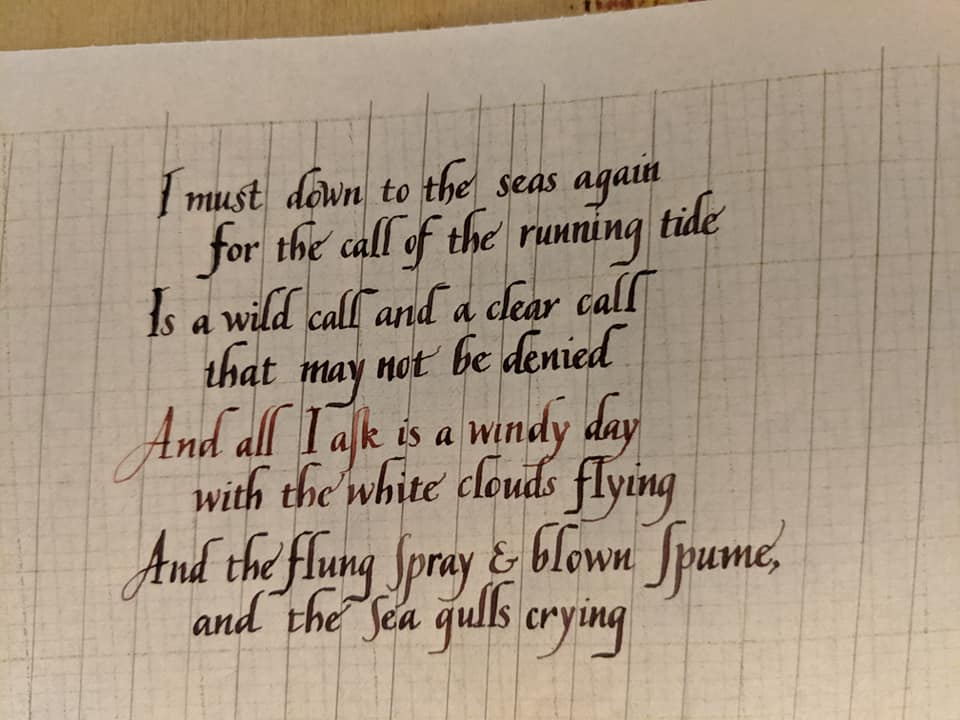 I must down to the seas again
for the call of the running tide
Is a wild call and a clear call
that may not be denied
And all I aſk is a windy day
with the white clouds flying
And the flung ſpray & blown ſpume,
and the ſea gulls crying